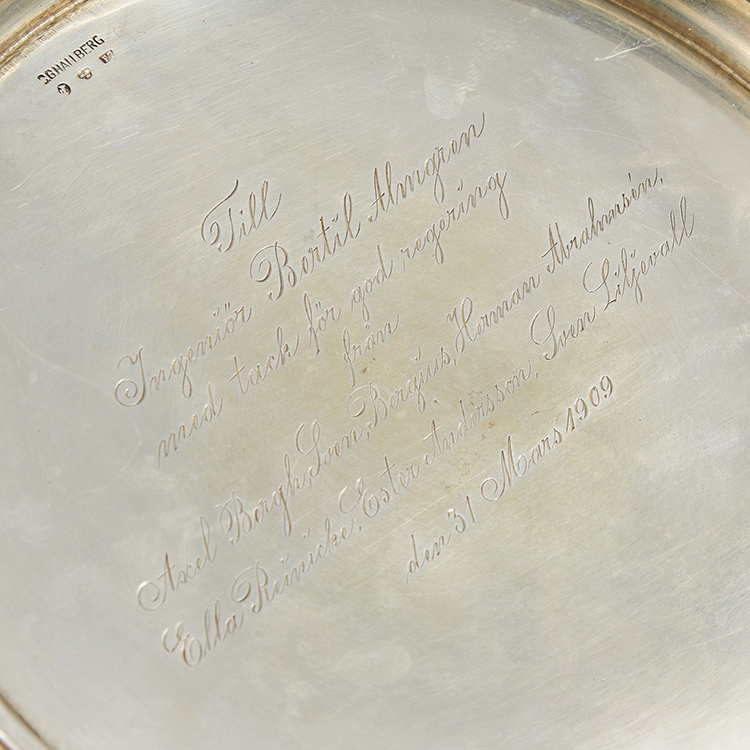 C.G.HALLBERG
Till
Ingeniör Bertil Almgren
med tack för god regering
från
Axel Bergh, Sven Bergius, Herman Abrahmsén,
Ella Reinicke, Ester Andersson, Sven Liljevall
den 31 Mars 1909